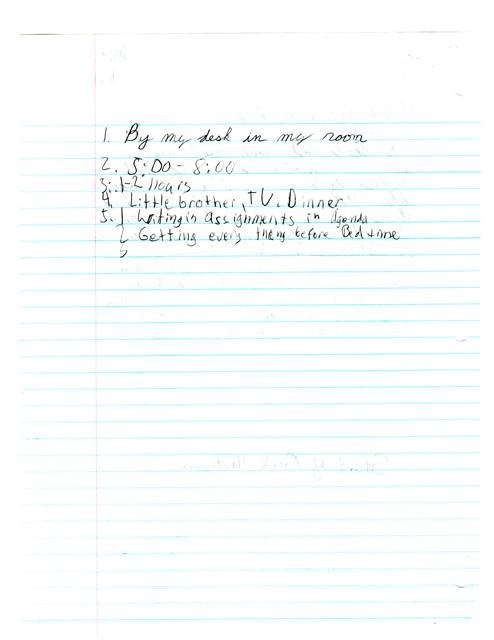 1. By my desk in my room
2. 5:00 - 8:00
3. 1-2 Hours
4. Little brother, TV, Dinner
5. 1 Writing in assignments in Agenda
2 Getting every thing before Bedtime
3